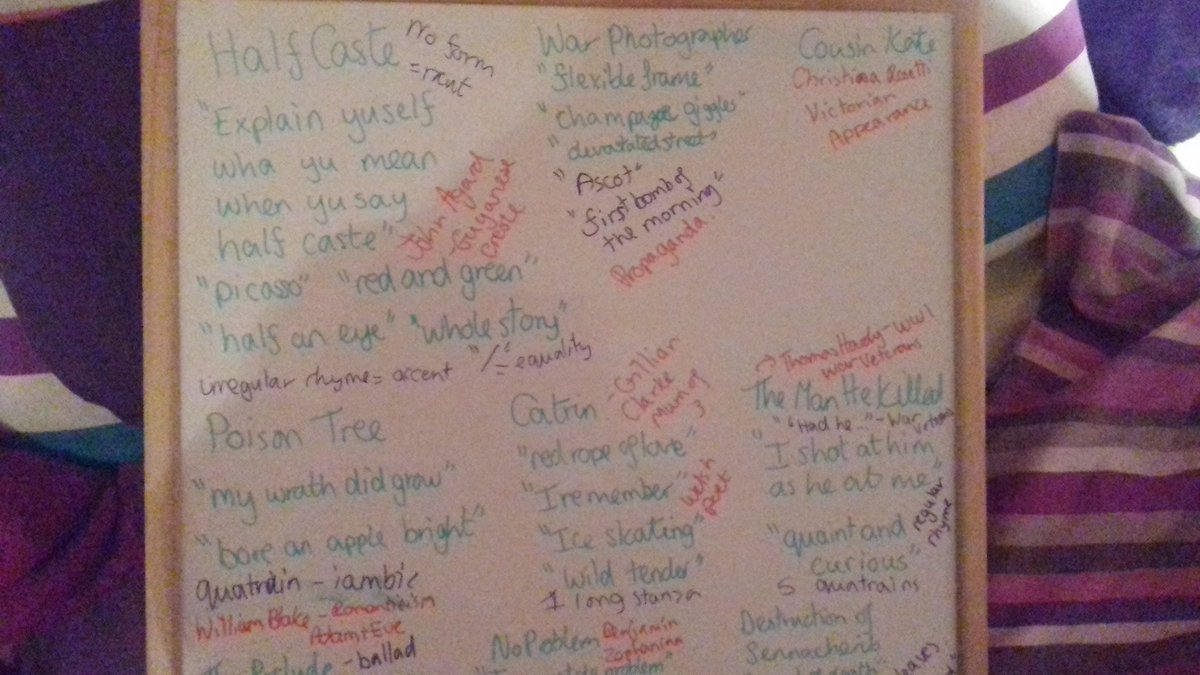 Half Caste
no form
= rant
"Explain yuself
wha yu mean
when yu say
half caste"
John Agard
Guyanese
Creole
"picasso" "red and green"
"half an eye" "whole story"
irregular rhyme = accent "/" = equality
War Photographer
"flexible frame"
"champagne giggles"
"devastated street"
"Ascot"
"first bomb of
the morning"
Propaganda.
Cousin Kate
Christina
Victorian
Appearance
Poison Tree
"my wrath did grow"
"bore an apple bright"
quatrain - iambic
William Blake - Romanticism
Adam + Eve
Prelude - ballad
Catrin - Gillian
Clarke
Mum of
3
"red rope of love"
"I remember"
Welsh
Poet
"Ice skating"
"wild tender"
1 long stanza
No Problem Benjamin
problem"
→ Thomas Hardy - WW1
War Veterans
The Man He Killed
"Had he..." - War
"I shot at him
as he at me"
regular
rhyme
"quaint and
curious"
5
Destruction of
Sennacherib